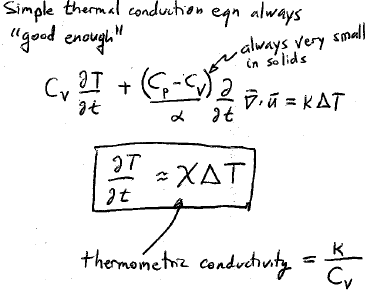 Simple thermal conduction eqn always
"good enough"
always very small
in solids
C_v ∂T/∂t + (C_p - C_v)/α ∂/∂t ∇⃗·u⃗ = κΔT
∂T/∂t ≈ χΔT
thermometric conductivity = κ/C_v